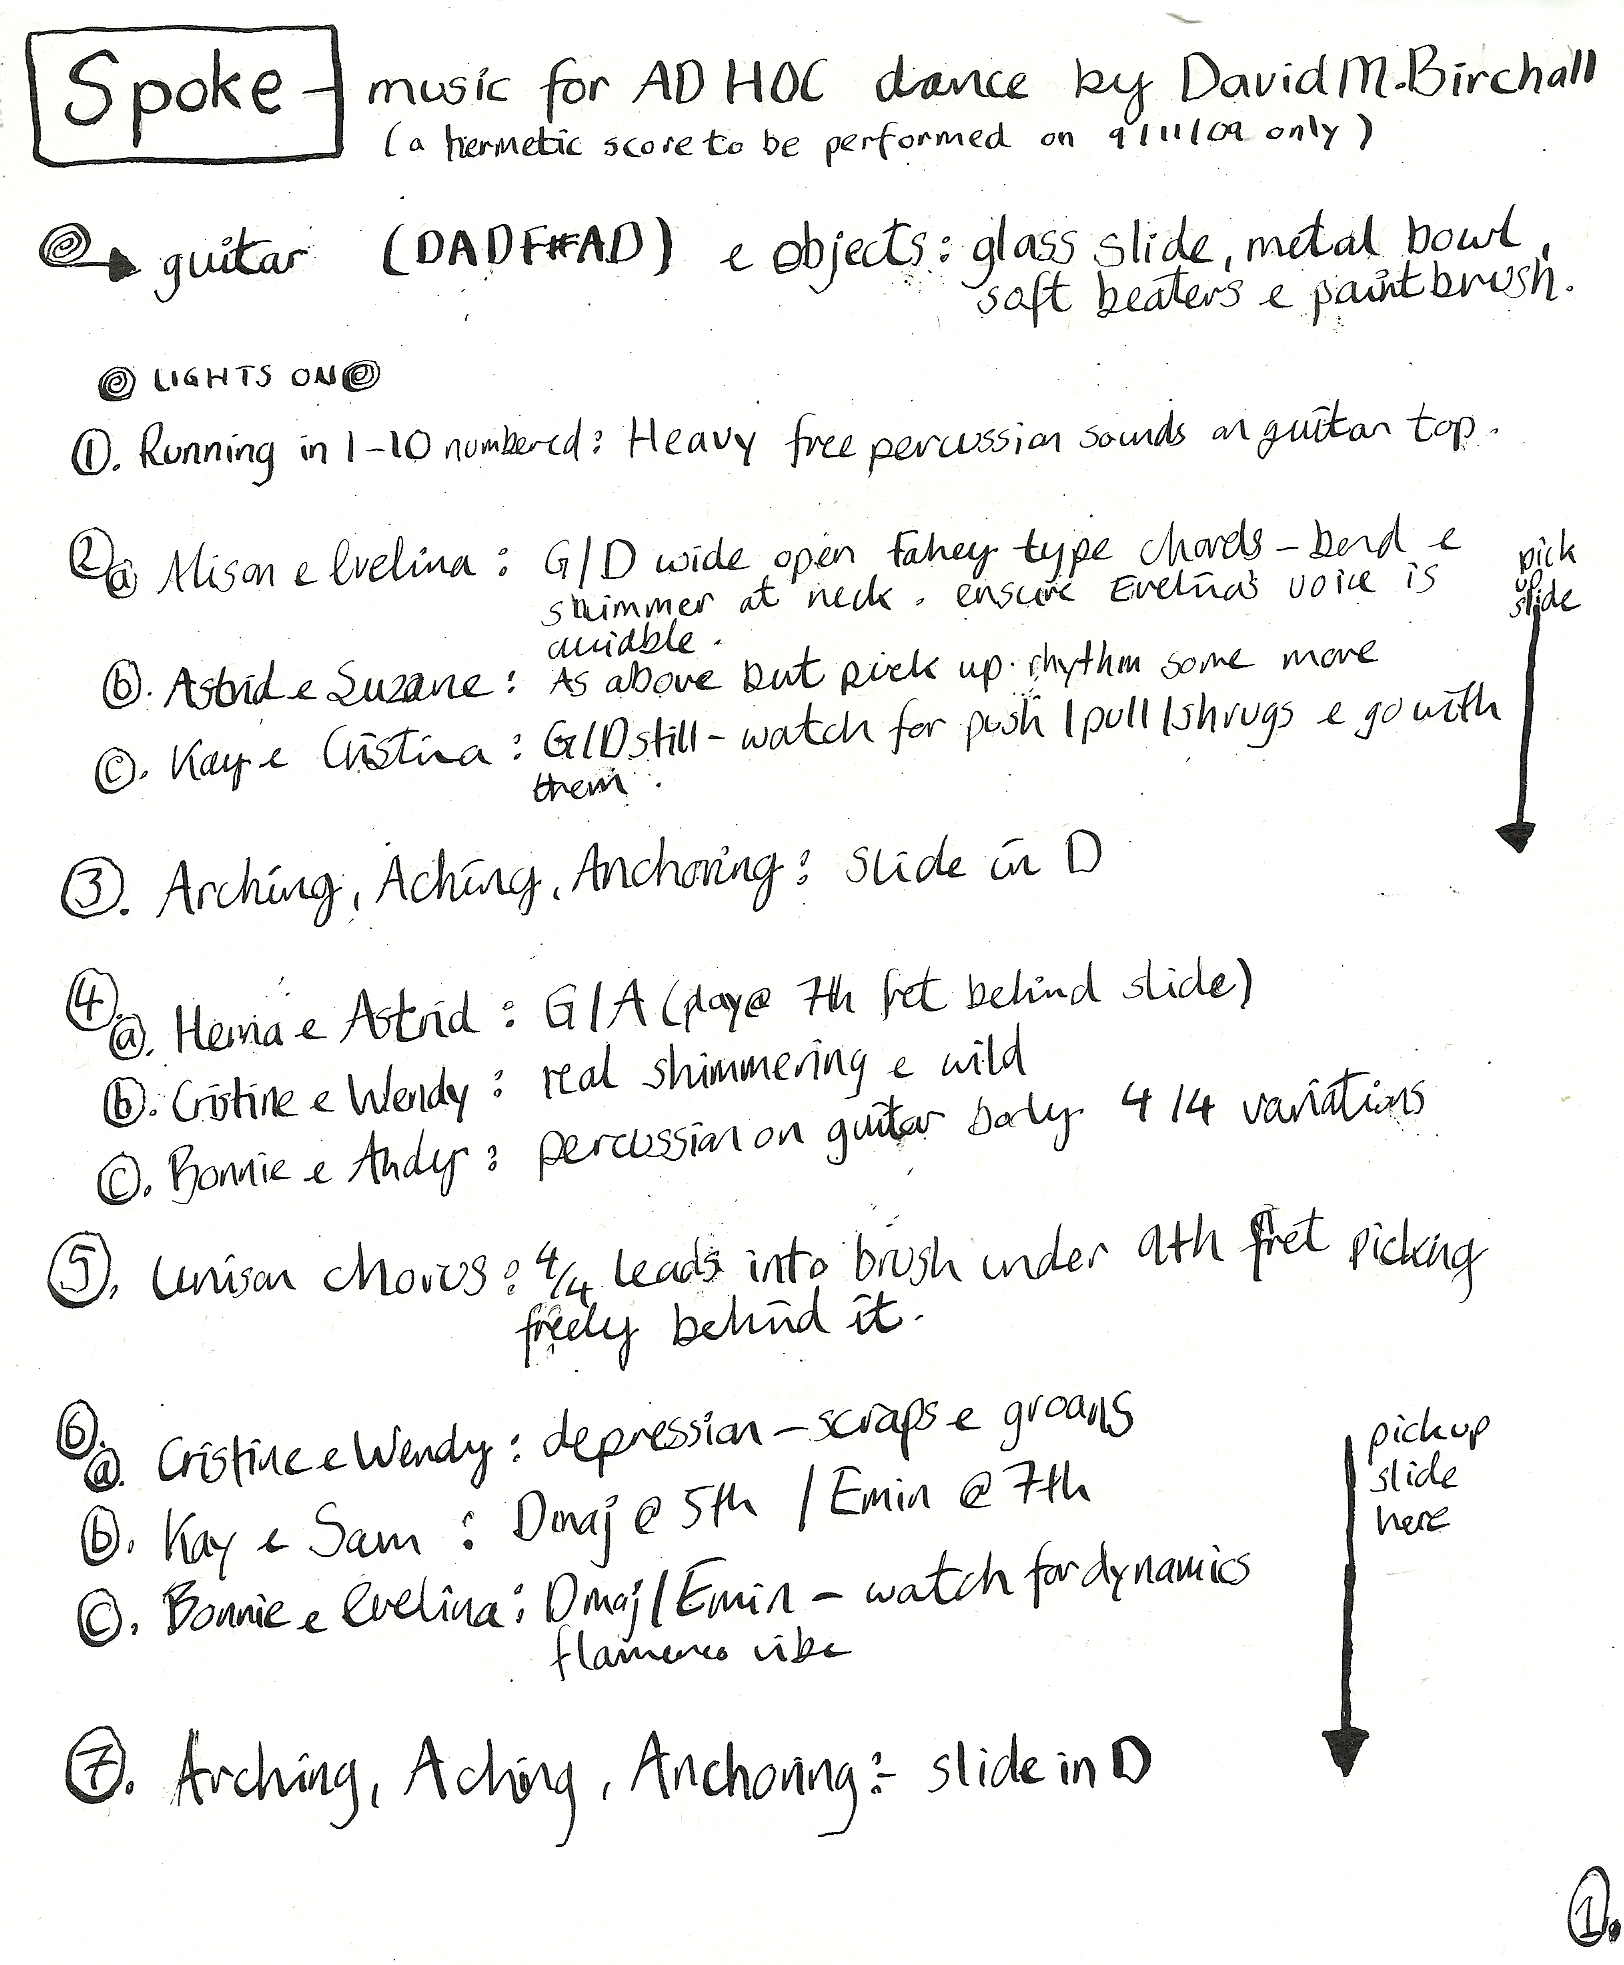 Spoke - music for AD HOC dance by David M. Birchall
(a hermetic score to be performed on 9/11/09 only)
guitar (DADF#AD) e objects: glass slide, metal bowl,
soft beaters e paintbrush.
LIGHTS ON
1. Running in 1-10 numbered: Heavy free percussion sounds on guitar top.
2. a Alison e Evelina: G/D wide open Fahey type chords - bend e
shimmer at neck. ensure Evelina's voice is
auidble.
b. Astrid e Suzane: As above but pick up rhythm some more
c. Kay e Cristina: G/D still - watch for push/pull/shrugs e go with
them.
pick
up
slide
3. Arching, Aching, Anchoring: slide in D
4. a. Hema e Astrid: G/A (play@ 7th fret behind slide)
b. Cristine e Wendy: real shimmering e wild
c. Bonnie e Andy: percussion on guitar body 4/4 variations
5. Unison chorus: 4/4 leads into brush under 9th fret picking
freely behind it.
6. a. Cristine e Wendy: depression - scraps e groans
b. Kay e Sam: Dmaj @ 5th / Emin @ 7th
c. Bonnie e Evelina: Dmaj/Emin - watch for dynamics
flamenco vibe
pick up
slide
here
7. Arching, Aching, Anchoring:- slide in D
1.